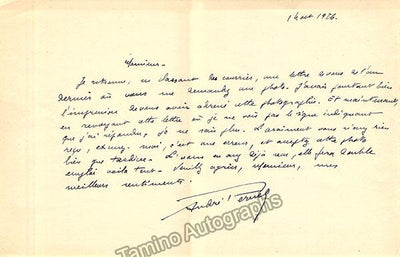 1 Aout 1926.
Monsieur -
Je retrouve, en classant des courriers, une lettre de vous de l'an
dernier où vous me demandez une photo. J'avais pourtant bien
l'impression de vous avoir adressé cette photographie. Et maintenant,
en revoyant cette lettre où je ne vois pas le signe indiquant
que j'ai répondu, je ne sais plus. Si vraiment vous n'avez rien
reçu, excusez-moi, c'est une erreur, et acceptez cette photo
bien que tardive. Si vous m'avez déjà reçu, elle fera double
emploi voilà tout. Veuillez agréer, Monsieur, mes
meilleurs sentiments.
André Pernet
Tamino Autographs